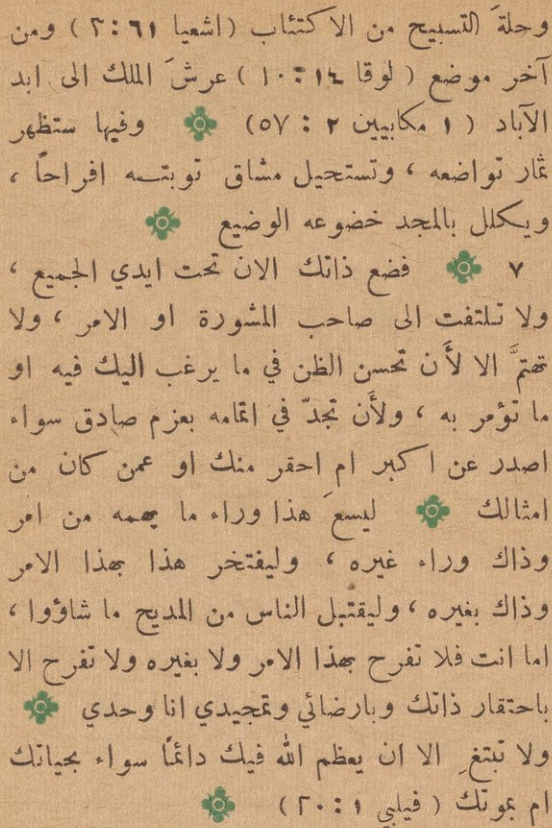 وحلةَ التسبيح من الاكتئاب (اشعيا ٦١:٣) ومن
آخر موضع (لوقا ١٤:١٠) عرشَ الملك الى ابد
الآباد (١ مكابيين ٢:٥٧) وفيها ستظهر
ثمار تواضعه ، وتستحيل مشاق توبتــه افراحاً ،
ويكلل بالمجد خضوعه الوضيع
٧ فضع ذاتك الان تحت ايدي الجميع ،
ولا تلتفت الى صاحب المشورة او الامر ، ولا
تهتمَّ الا لأَن تحسن الظن في ما يرغب اليك فيه او
ما تؤمر به ، ولأَن تجدّ في اتمامه بعزم صادق سواء
اصدر عن اكبر ام احقر منك او عمن كان من
امثالك ليسعَ هذا وراء ما يهمه من امر
وذاك وراء غيره ، وليفتخر هذا بهذا الامر
وذاك بغيره ، وليقتبل الناس من المديح ما شاؤوا ،
اما انت فلا تفرح بهذا الامر ولا بغيره ولا تفرح الا
باحتقار ذاتك وبارضائي وتمجيدي انا وحدي
ولا تبتغِ الا ان يعظم الله فيك دائمًا سواء بحياتك
ام بموتك (فيلبي ١:٢٠)